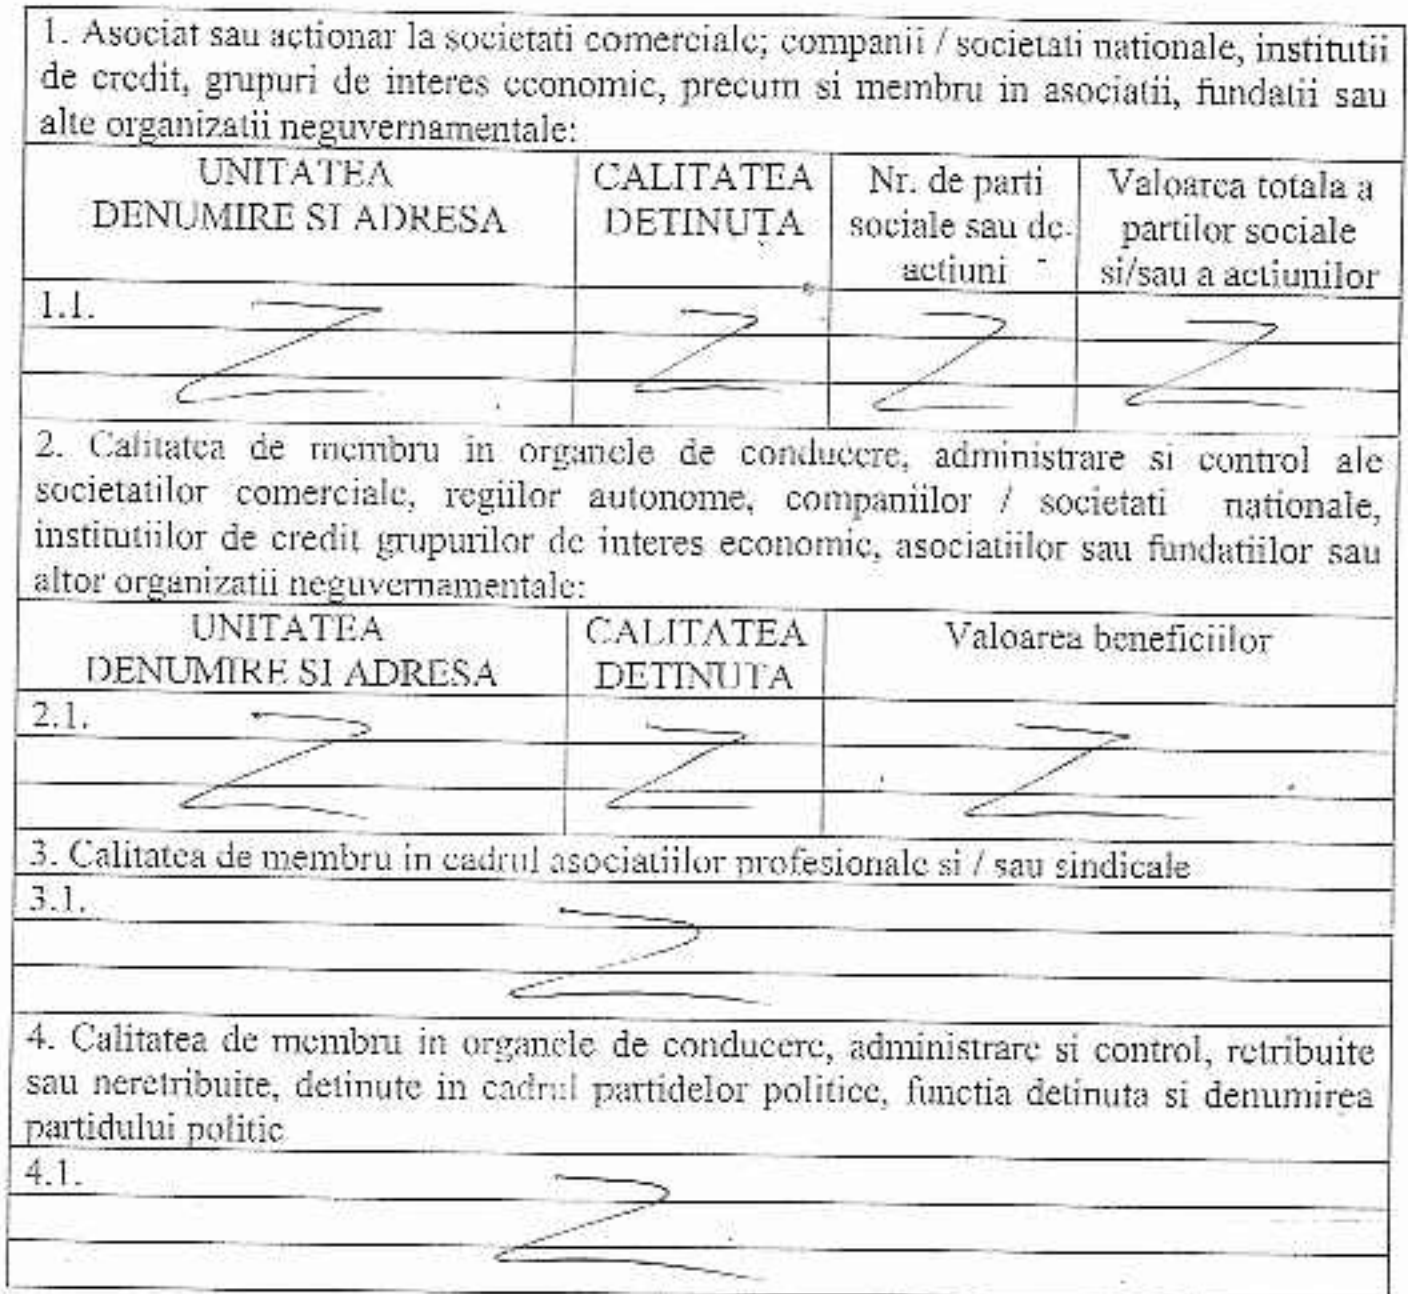 1. Asociat sau actionar la societati comerciale; companii / societati nationale, institutii
de credit, grupuri de interes economic, precum si membru in asociatii, fundatii sau
alte organizatii neguvernamentale:
UNITATEA
DENUMIRE SI ADRESA
CALITATEA
DETINUTA
Nr. de parti
sociale sau de
actiuni
Valoarea totala a
partilor sociale
si/sau a actiunilor
1.1.
2. Calitatea de membru in organele de conducere, administrare si control ale
societatilor comerciale, regiilor autonome, companiilor / societati nationale,
institutiilor de credit grupurilor de interes economic, asociatiilor sau fundatiilor sau
altor organizatii neguvernamentale:
UNITATEA
DENUMIRE SI ADRESA
CALITATEA
DETINUTA
Valoarea beneficiilor
2.1.
3. Calitatea de membru in cadrul asociatiilor profesionale si / sau sindicale
3.1.
4. Calitatea de membru in organele de conducere, administrare si control, retribuite
sau neretribuite, detinute in cadrul partidelor politice, functia detinuta si denumirea
partidului politic
4.1.